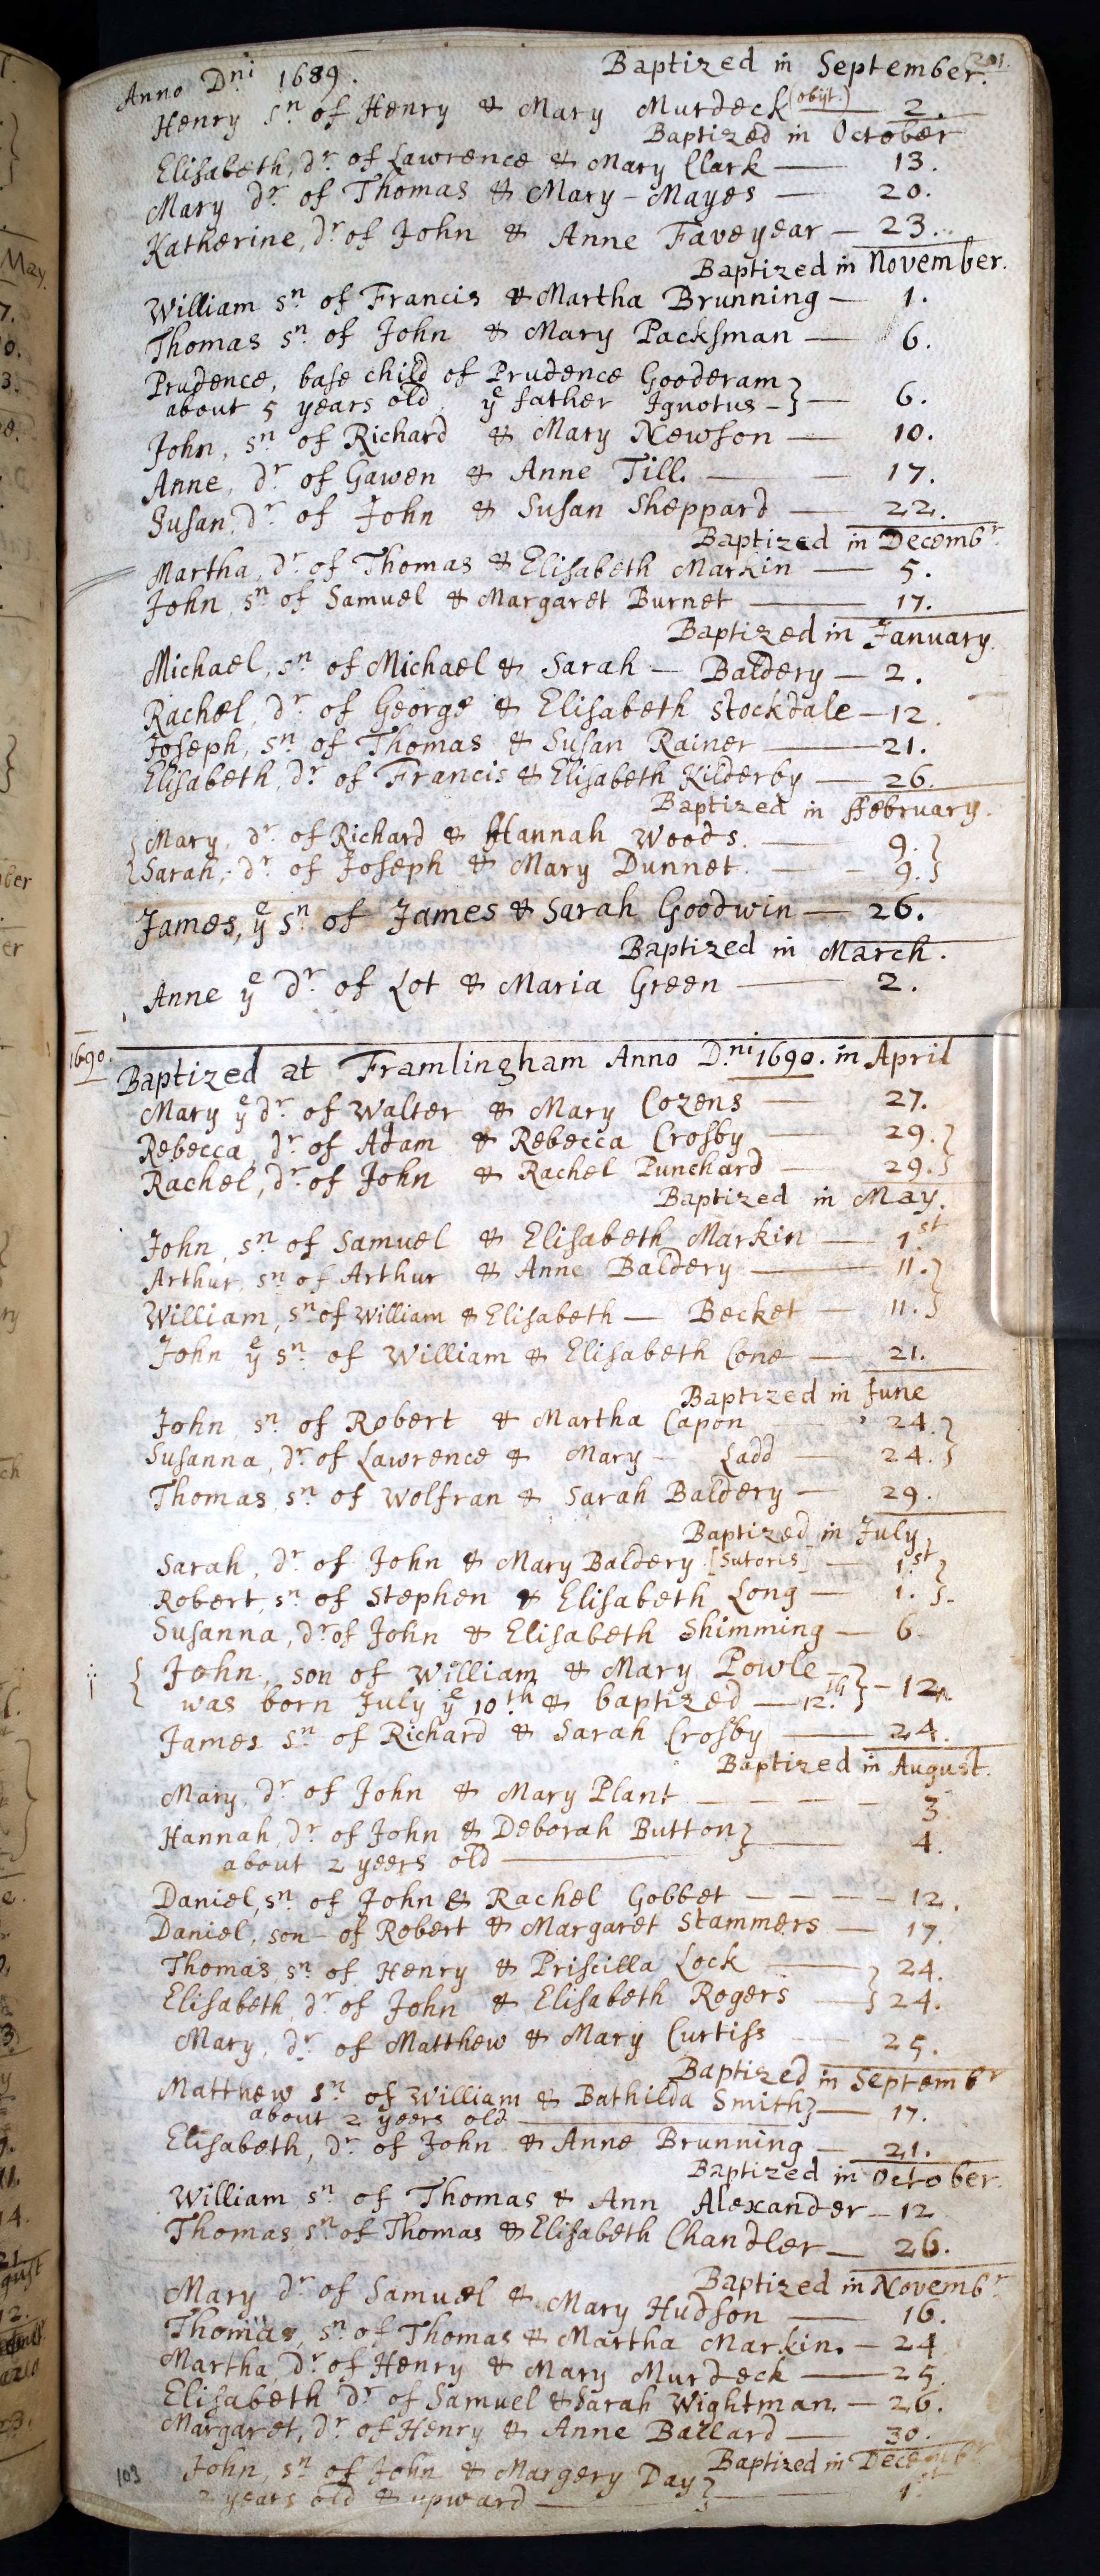 201.
Anno Dni 1689. Baptized in September.
Henry sn of Henry & Mary Murdeck (obijt.) 2.
Baptized in October
Elisabeth, dr of Lawrence & Mary Clark — 13.
Mary dr of Thomas & Mary – Mayes — 20.
Katherine, dr of John & Anne Faveyear — 23.
Baptized in November.
William sn of Francis & Martha Brunning — 1.
Thomas sn of John & Mary Packsman — 6.
Prudence, base child of Prudence Gooderam
about 5 years old ye father Ignotus –} — 6.
John, sn of Richard & Mary Newson — 10.
Anne, dr of Gawen & Anne Till. — 17.
Susan, dr of John & Susan Sheppard — 22.
Baptized in Decembr
Martha, dr of Thomas & Elisabeth Markin — 5.
John, sn of Samuel & Margaret Burnet — 17.
Baptized in January.
Michael, sn of Michael & Sarah — Baldery — 2.
Rachel, dr of George & Elisabeth Stockdale — 12.
Joseph, sn of Thomas & Susan Rainer — 21.
Elisabeth, dr of Francis & Elisabeth Kilderby — 26.
Baptized in ffebruary.
{Mary, dr of Richard & Hannah Woods. — 9.}
{Sarah, dr of Joseph & Mary Dunnet. — 9.}
James, ye sn of James & Sarah Goodwin — 26.
Baptized in March.
Anne ye dr of Lot & Maria Green — 2.
1690.
Baptized at Framlingham Anno Dni 1690. in April
Mary ye dr of Walter & Mary Cozens — 27.
Rebecca, dr of Adam & Rebecca Crosby — 29.}
Rachel, dr of John & Rachel Punchard — 29.}
Baptized in May.
John, sn of Samuel & Elisabeth Markin — 1st
Arthur, sn of Arthur & Anne Baldery — 11.}
William, sn of William & Elisabeth — Becket — 11.}
John ye sn of William & Elisabeth Cone — 21.
Baptized in June
John sn of Robert & Martha Capon 24.}
Susanna, dr of Lawrence & Mary – Ladd — 24.}
Thomas, sn of Wolfran & Sarah Baldery — 29.
Baptized in July,
Sarah, dr of John & Mary Baldery [Sutoris] — 1st}
Robert, sn of Stephen & Elisabeth Long — 1.}
Susanna, dr of John & Elisabeth Shimming — 6
{John, son of William & Mary Powle –
was born July ye 10th & baptized — 12th} – 12.
James sn of Richard & Sarah Crosby — 24.
Baptized in August.
Mary, dr of John & Mary Plant — 3
Hannah, dr of John & Deborah Button} — 4.
about 2 yeers old —
Daniel, sn of John & Rachel Gobbet — 12.
Daniel, son – of Robert & Margaret Stammers — 17.
Thomas, sn of Henry & Priscilla Lock —} 24.
Elisabeth, dr of John & Elisabeth Rogers —} 24.
Mary, dr of Matthew & Mary Curtiss — 25.
Baptized in Septembr
Matthew sn of William & Bathilda Smith} — 17.
about 2 yeers old —
Elisabeth, dr of John & Anne Brunning — 21.
Baptized in October.
William, sn of Thomas & Ann Alexander — 12
Thomas, sn of Thomas & Elisabeth Chandler — 26.
Baptized in Novembr
Mary dr of Samuel & Mary Hudson — 16.
Thomas, sn of Thomas & Martha Markin. — 24
Martha, dr of Henry & Mary Murdeck — 25
Elisabeth dr of Samuel & Sarah Wightman. — 26.
Margaret, dr of Henry & Anne Ballard — 30.
Baptized in Decembr
John, sn of John & Margery Day}
2 years old & upward — 1st
103